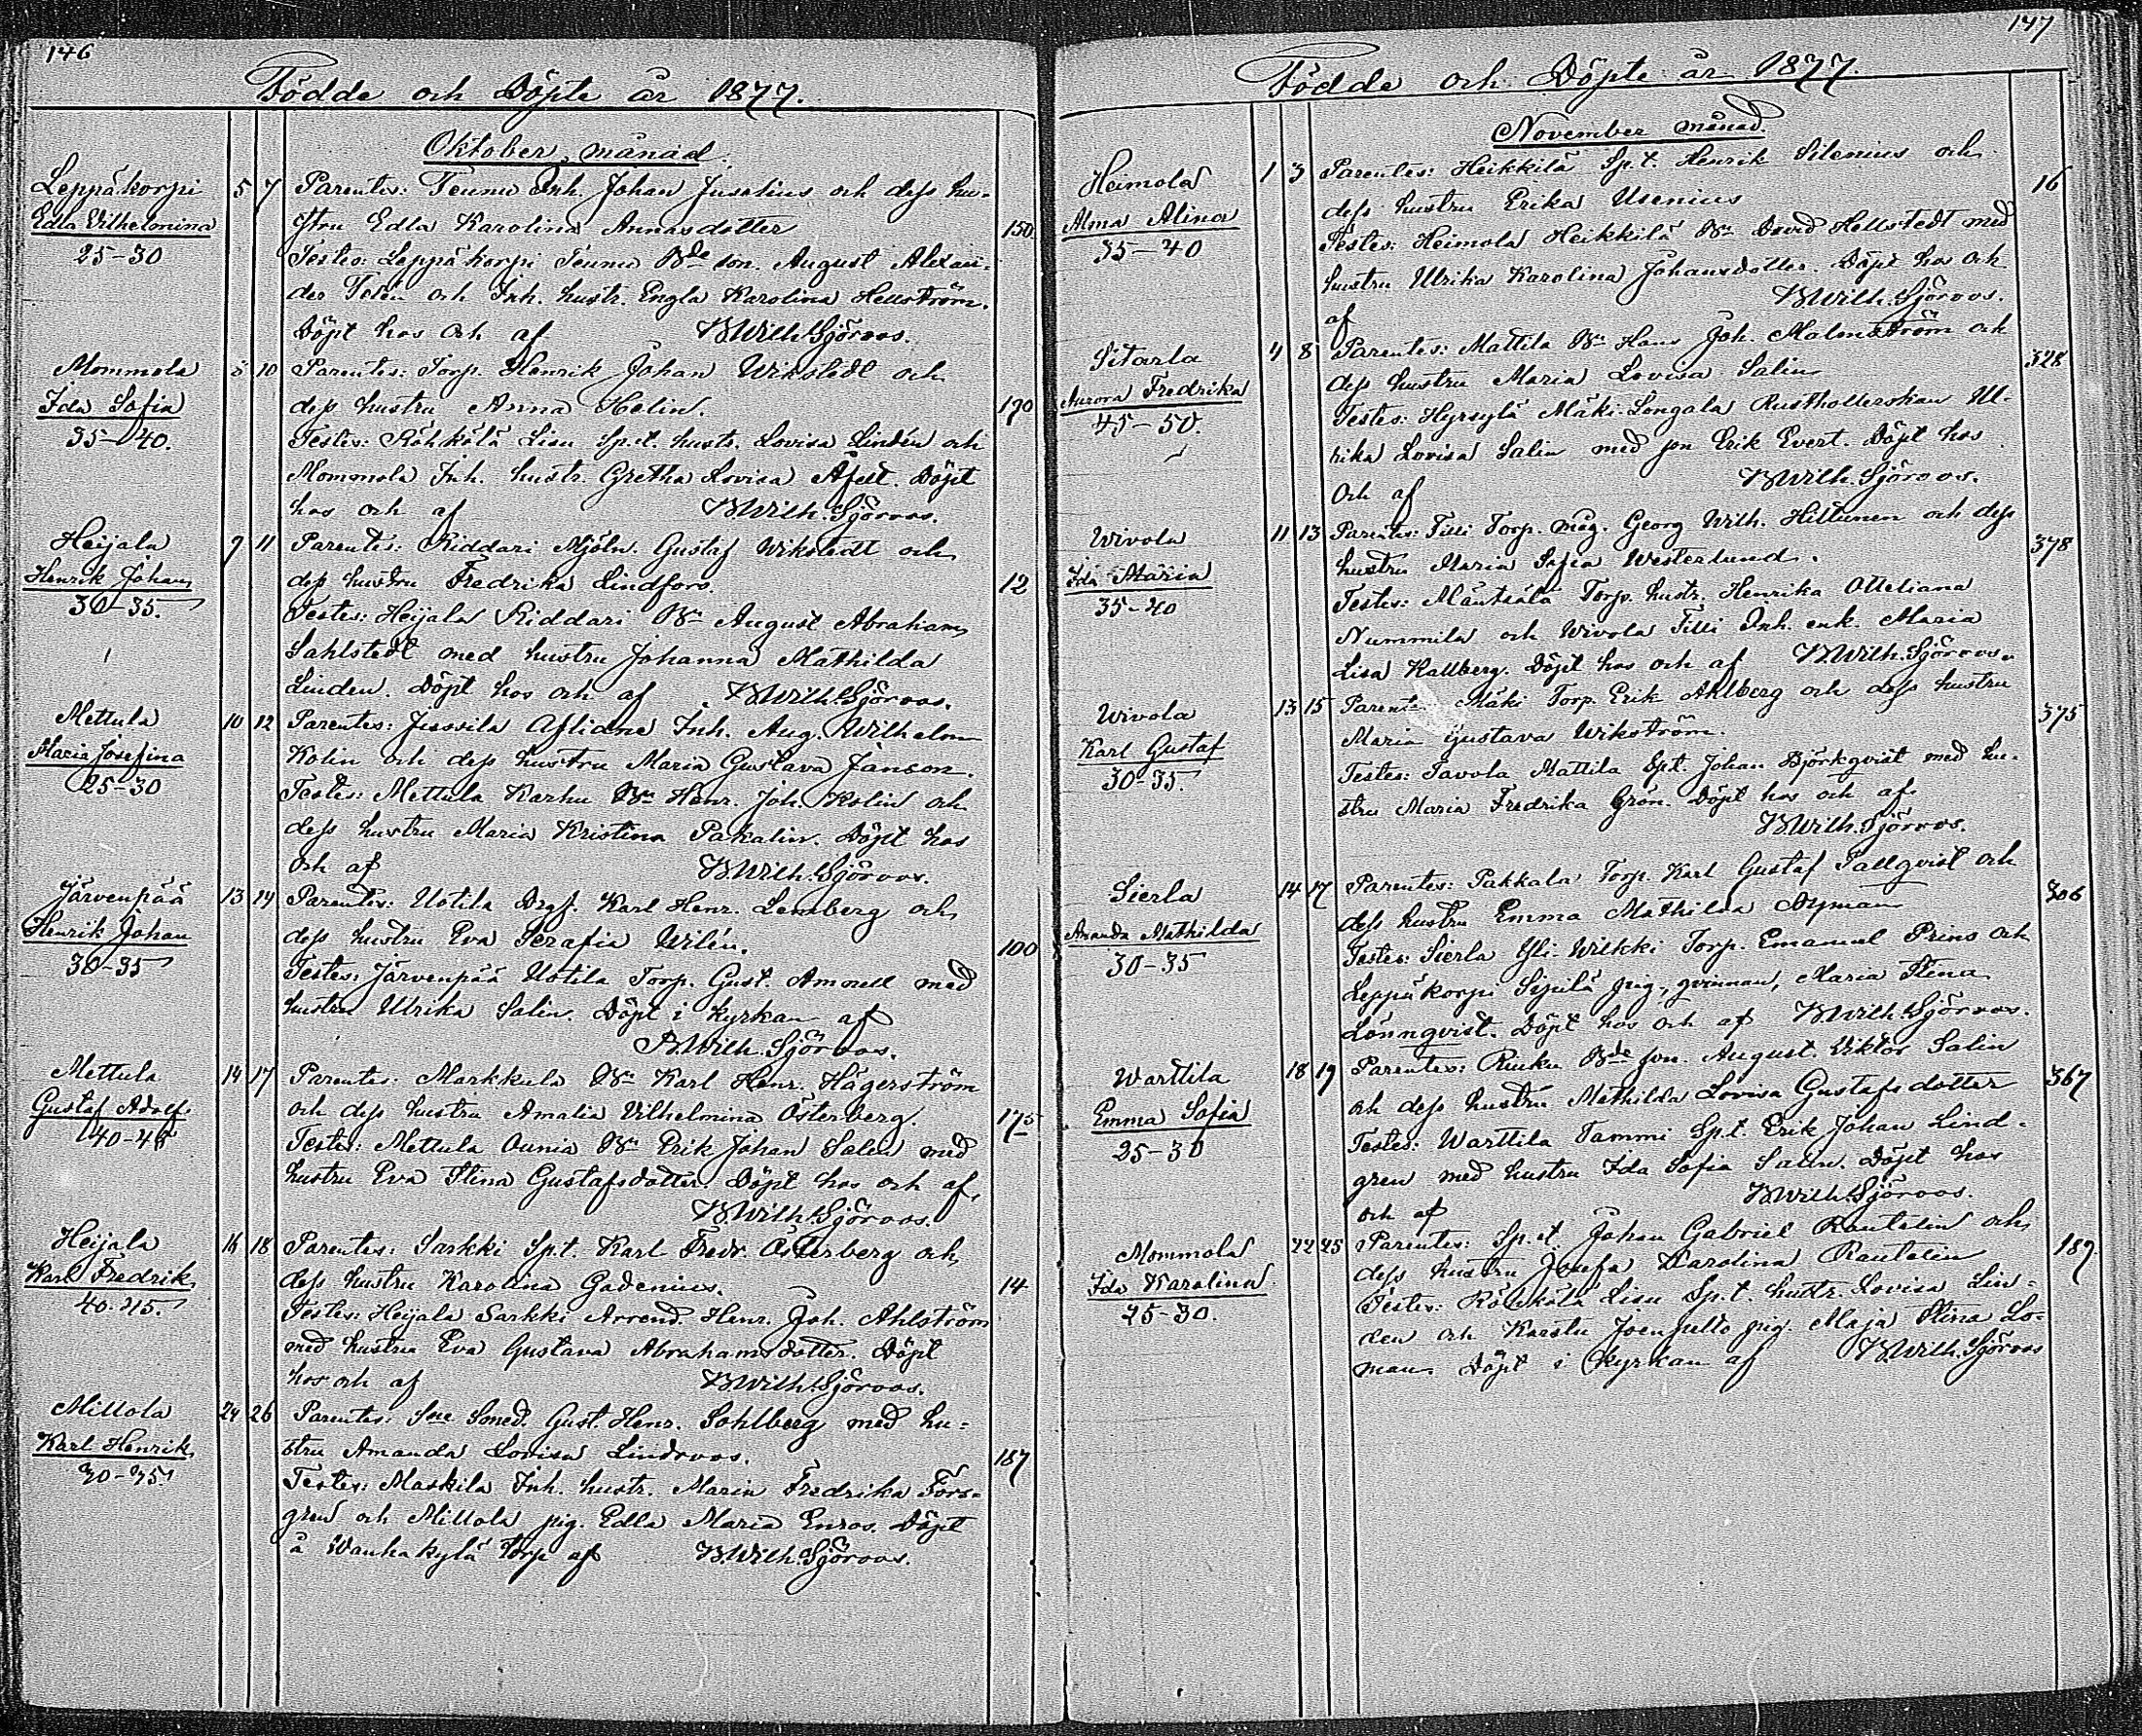 146
Födde och Döpte år 1877.
Oktober månad.
Leppäkorpi 5 7 Parentes: Teunu Inh. Johan Juselius och dess hu-
Edla Vilhelmina stru Edla Karolina Annasdotter 150
25-30 Testes: Leppäkorpi Teunu Bde son. August Alexan-
der Tolén och Inh. hustr. Engla Karolina Hellström.
Döpt hos och af B Wilh. Sjöroos.
Mommola 8 10 Parentes: Torp. Henrik Johan Wikstedt och
Ida Sofia dess hustru Anna Helin. 190
35-40. Testes: Röhkölä Lisu Sp.t. hustr. Lovisa Lindén och
Mommola Inh. hustr. Gretha Lovisa Äfelt. Döpt
hos och af B Wilh. Sjöroos.
Heijala 9 11 Parentes: Riddari Mjöln. Gustaf Wikstedt och
Henrik Johan dess hustru Fredrika Lindfors. 12
30-35. Testes: Heijala Riddari Bn August Abraham
Sahlstedt med hustru Johanna Mathilda
Linden. Döpt hos och af B Wilh. Sjöroos.
Mettula 10 12 Parentes: Jussila Inh. Aug. Wilhelm
Maria Josefina Kolin och dess hustru Maria Gustava Janson.
25-30 Testes: Mettula Karhu Bn Henr. Joh. Kolin och
dess hustru Maria Kristina Pakalin. Döpt hos
och af B Wilh. Sjöroos.
Järvenpää 13 14 Parentes: Uotila Drgf. Karl Henr. Lemberg och
Henrik Johan dess hustru Eva Serafia Wilén. 100
30-35 Testes: Järvenpää Uotila Torp. Gust. Amorell med
hustru Ulrika Salin. Döpt i kyrkan af
B Wilh. Sjöroos.
Mettula 14 17 Parentes: Markkula Bn Karl Henr. Hägerström
Gustaf Adolf och dess hustru Amalia Vilhelmina Österberg. 175
40-45 Testes: Mettula Ounia Bn Erik Johan Salen med
hustru Eva Stina Gustafsdotter. Döpt hos och af
B Wilh. Sjöroos.
Heijala 16 18 Parentes: Sarkki Sp.t. Karl Fredr. Österberg och
Karl Fredrik dess hustru Karolina Gadenius. 14
40-45. Testes: Heijala Sarkki Arrend. Henr. Joh. Ahlström
med hustru Eva Gustava Abrahamsdotter. Döpt
hos och af B Wilh. Sjöroos.
Millola 24 26 Parentes: Smed. Gust. Henr. Sohlberg med hu-
Karl Henrik stru Amanda Lovisa Lindroos. 187
30-35. Testes: Maskila Inh. hustr. Maria Fredrika Fors-
gren och Millola pig. Edla Maria Enros. Döpt
å Wanhakylä torp af B. Wilh. Sjöroos.
147
Födde och Döpte år 1877.
November månad.
Heimola 1 3 Parentes: Heikkilä Sp.t. Henrik Silenius och 16
Alma Alina dess hustru Erika Usenius
35-40 Testes: Heimola Heikkilä Bn David Hellstedt med
hustru Ulrika Karolina Johansdotter. Döpt hos och
af B Wilh. Sjöroos.
Sitarla 4 8 Parentes: Mattila Bn Hans Joh. Malmström och 328
Aurora Fredrika dess hustru Maria Lovisa Salin
45-50. Testes: Hyrsylä Mäki-Longala Rusthollerskan Ul-
rika Lovisa Salin med son Erik Evert. Döpt hos
Och af B Wilh. Sjöroos.
Wivola 11 13 Parentes: Filli Torp. måg. Georg Wilh. Hiltunen och dess 378
Ida Maria hustru Maria Sofia Westerlund.
35-40 Testes: Mäntsälä Torp. hustr. Henrika Otteliana
Nummila och Wivola Filli Inh. enk. Maria
Lisa Kallberg. Döpt hos och af B Wilh. Sjöroos.
Wivola 13 15 Parentes: Mäki Torp. Erik Ahlberg och dess hustru 375
Karl Gustaf Maria Gustava Wikström.
30-35. Testes: Tavola Mattila Spt. Johan Björkqvist med hu-
stru Maria Fredrika Grön. Döpt hos och af
B Wilh. Sjöroos.
Sierla 14 17 Parentes: Pakkala Torp. Karl Gustaf Tallqvist och 306
Amanda Mathilda dess hustru Emma Mathilda Nyman
30-35 Testes: Sierla Yli-Wilkki Torp. Emanuel Prins och
Leppäkorpi Sipilä pig., qvinnan, Maria Stina
Lönnqvist. Döpt hos och af B Wilh. Sjöroos.
Warttila 18 19 Parentes: Ruuku Bde son. August Viktor Salin 367
Emma Sofia och dess hustru Mathilda Lovisa Gustafsdotter
25-30 Testes: Warttila Tammi Sp.t. Erik Johan Lind-
gren med hustru Ida Sofia Salin. Döpt hos
och af B Wilh. Sjöroos.
Mommola 22 25 Parentes: Sp.t. Johan Gabriel Rautelin och 189
Ida Karolina dess hustru Josefa Karolina Rautelin
25-30. Testes: Röhkölä Lisu Sp.t. hustr. Lovisa Lin-
den och Karstu Joenpelto pig. Maja Stina Lo-
man. Döpt i kyrkan af B. Wilh. Sjöroos